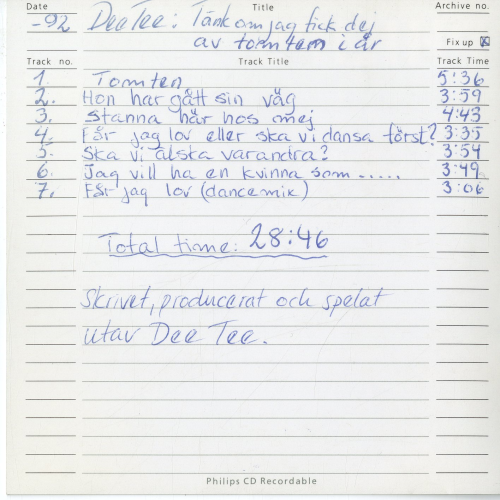 Date Title Archive no.
-92 Dee Tee: Tänk om jag fick dej
av tomten i år
Fix up ☒
Track no. Track Title Track Time
1. Tomten 5:36
2. Hon har gått sin väg 3:59
3. Stanna här hos mej 4:43
4. Får jag lov eller ska vi dansa först? 3:35
5. Ska vi älska varandra? 3:54
6. Jag vill ha en kvinna som ..... 3:49
7. Får jag lov (dancemix) 3:06
Total time: 28:46
Skrivet, producerat och spelat
utav Dee Tee.
Philips CD Recordable